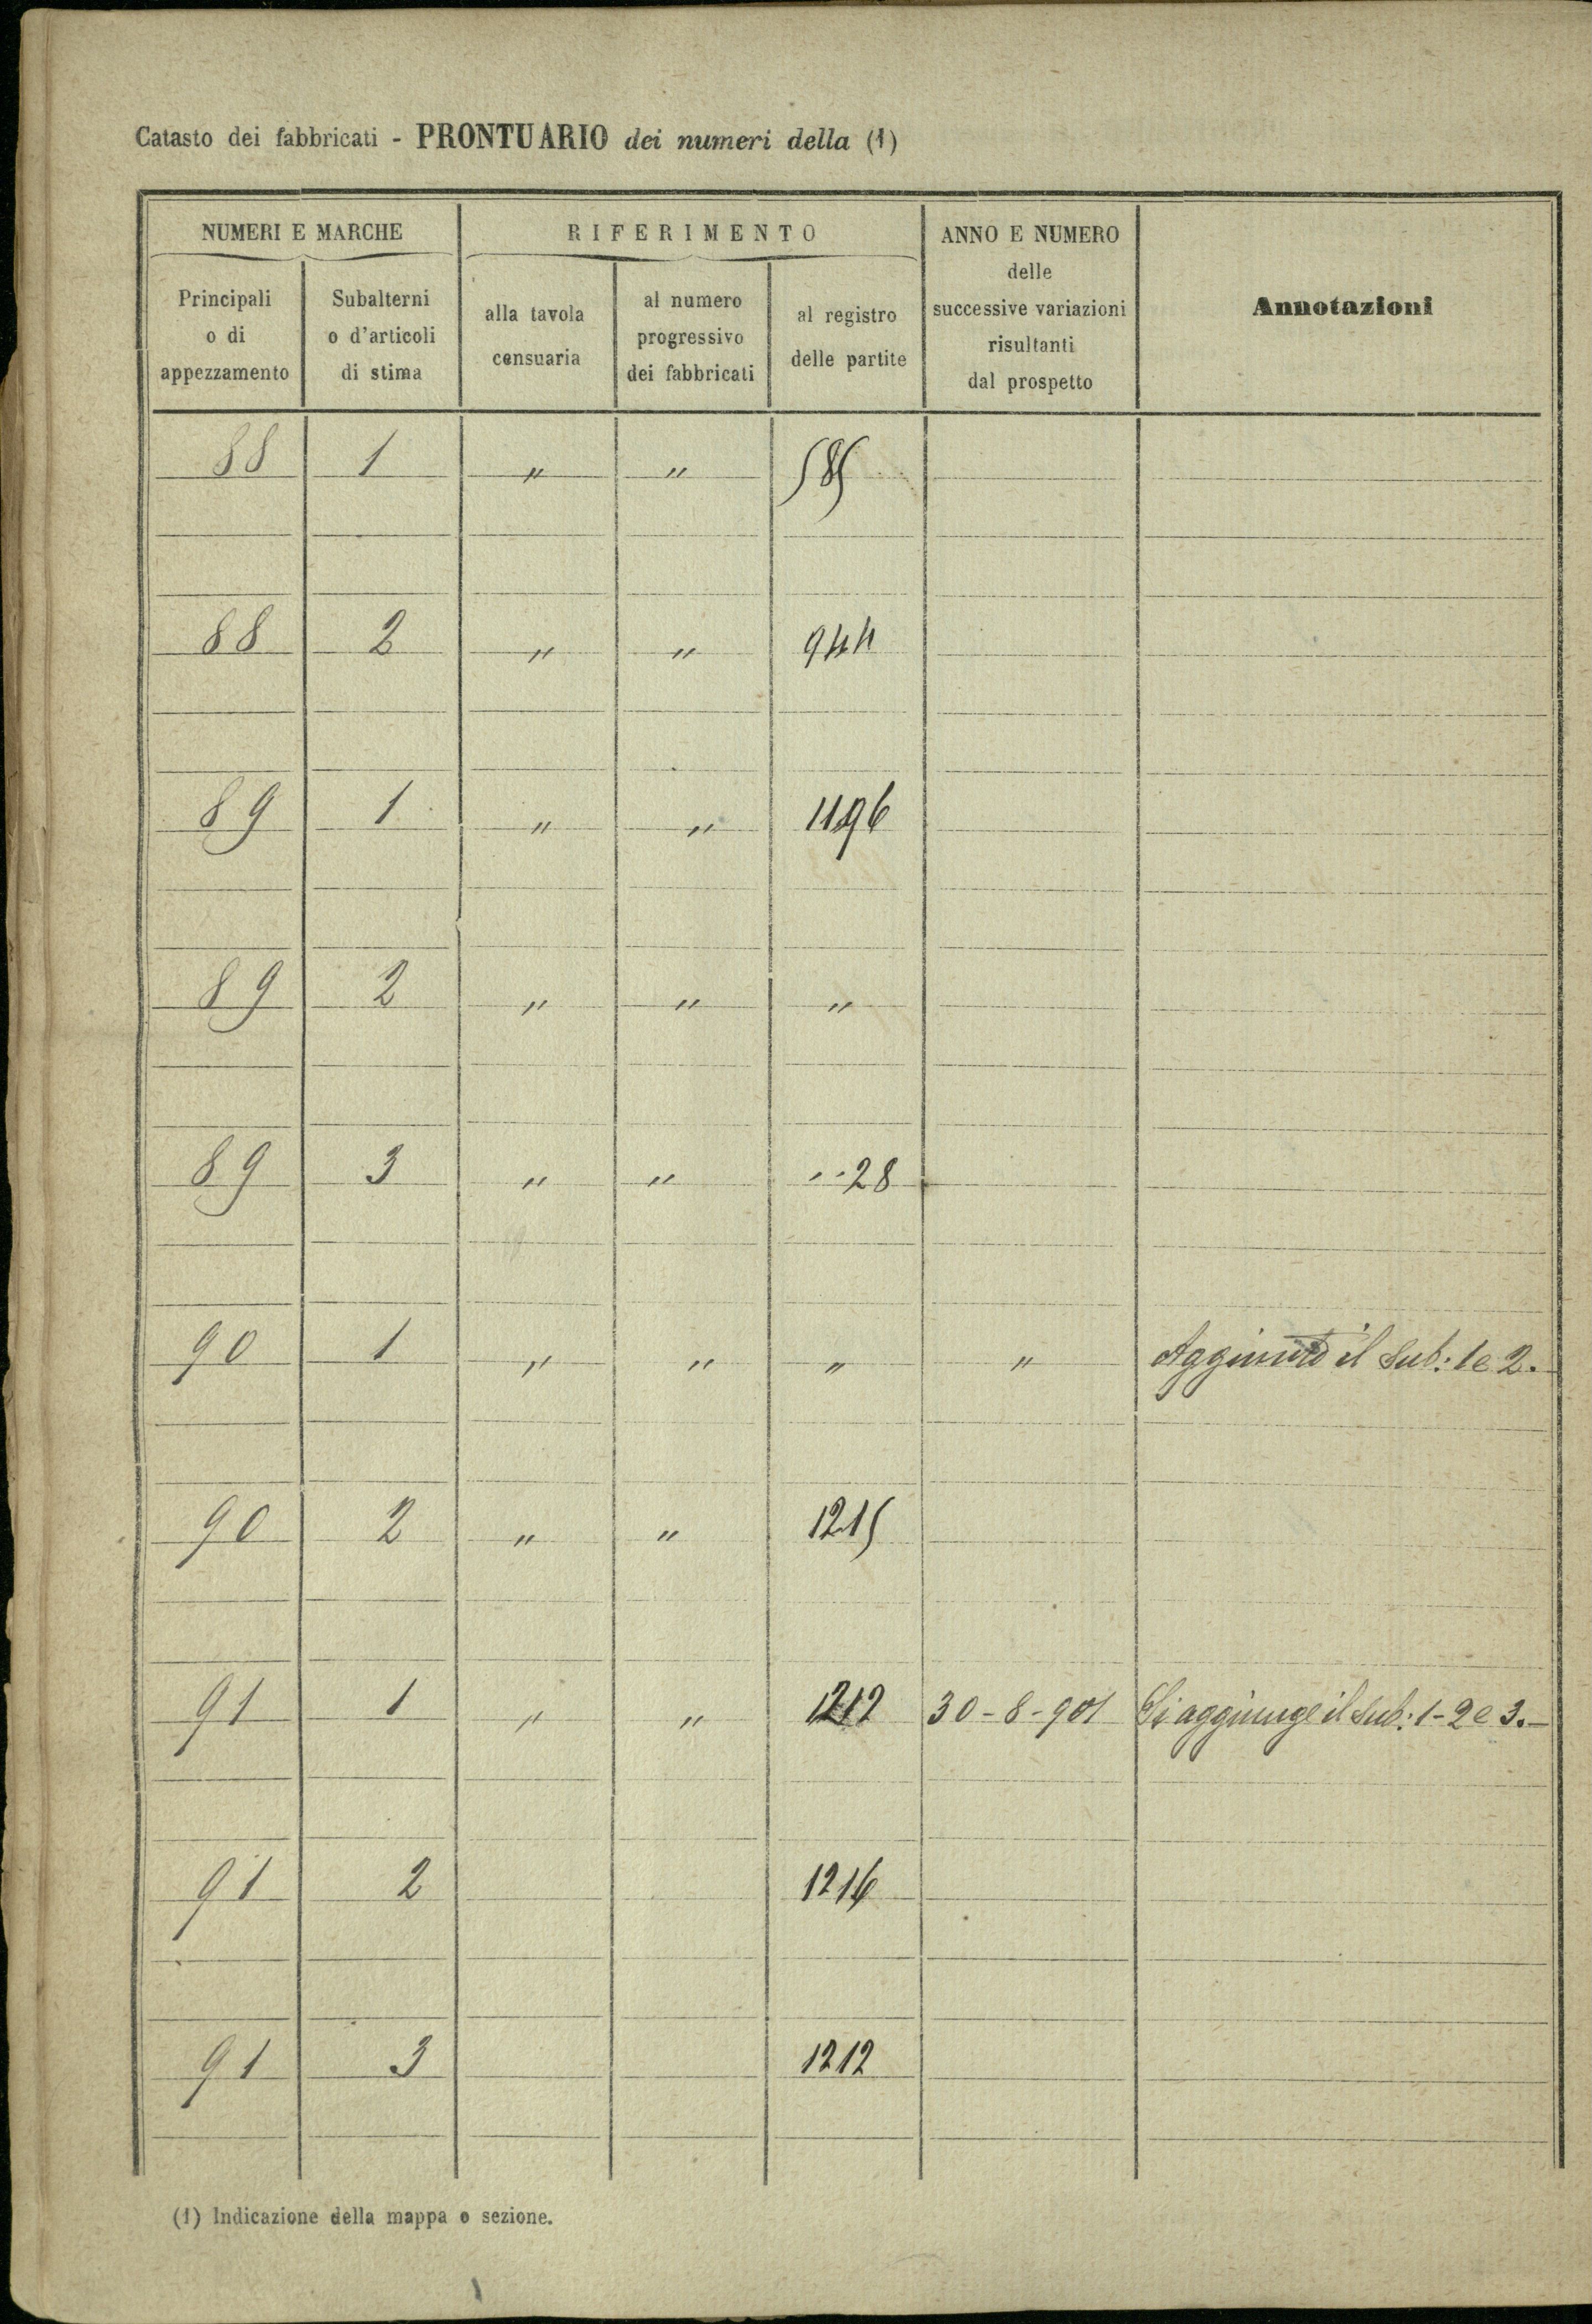 Catasto dei fabbricati - PRONTUARIO dei numeri della (1)
NUMERI E MARCHE
RIFERIMENTO
ANNO E NUMERO
delle
successive variazioni
risultanti
dal prospetto
Annotazioni
Principali
o di
appezzamento
Subalterni
o d'articoli
di stima
alla tavola
censuaria
al numero
progressivo
dei fabbricati
al registro
delle partite
88 1 " " 585
88 2 " " 944
89 1 " " 1196
89 2 " " "
89 3 " " "28
90 1 " " " " Aggiunto il sub: 1 e 2.
90 2 " " 1215
91 1 " " 1212 30-8-901 Si aggiunge il sub: 1-2 e 3.—
91 2 1216
91 3 1212
(1) Indicazione della mappa o sezione.